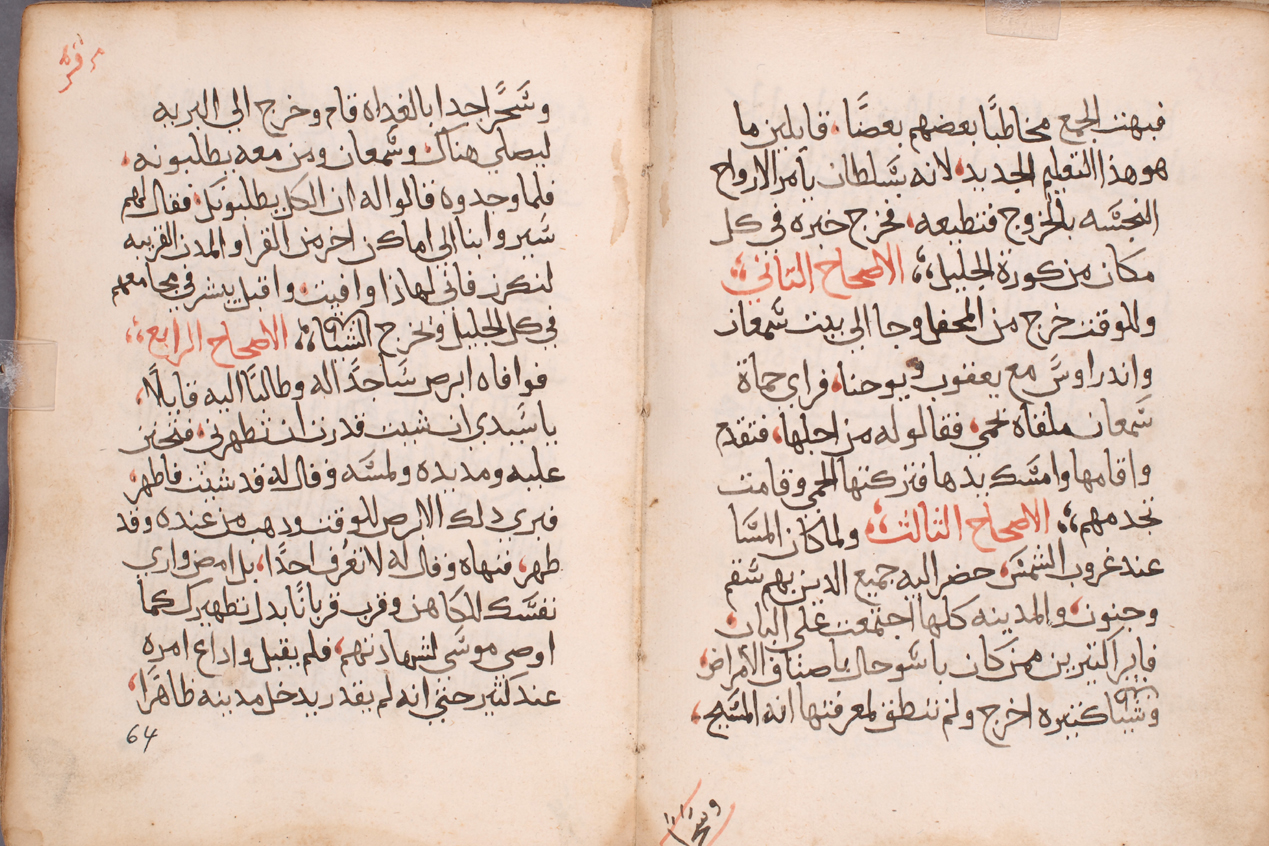 فبهت الجمع مخاطبًا بعضهم بعضًا، قايلين ما
هو هذا التعليم الجديد، لانه بسلطان يامر الارواح
النجسه بالخروج فتطيعه، فخرج خبره في كل
مكان من كورة الجليل، الاصحاح الثاني،
وللوقت خرج من المحفل وجا الي بيت شمعان
واندراوس مع يعقوب ويوحنا، فراي حماة
شمعان ملقاه بحمي، فقالو له من اجلها، فتقدم
واقامها وامسك يدها فتركتها الحمي وقامت
تخدمهم، الاصحاح الثالث، ولما كان المسا
عند غروب الشمس، حضر اليه جميع الدين بهم سقم
وجنون، والمدينه كلها اجتمعت علي الباب،
فابرا كثيرين ممن كان باسو حال باصناف الأمراض،
كثيره اخرج ولم تنطق لمعرفتها انه المسيح،
وسحرًا
وسحرًا جدا بالغداه قام وخرج الي البريه
ليصلي هناك، وشمعان ومن معه يطلبونه،
فلما وجدوه قالوا له ان الكل يطلبونك، فقال لهم
سيروا بنا الي اماكن اخر من القرا والمدن القريبه
لنكرز فاني لهاذا وافيت، واقبل يبشر في مجامعهم
في كل الجليل ويخرج الاصحاح الرابع،
فوافاه ابرص ساجدًا له وطالبًا اليه قايلًا،
يا سيدي ان شيت قدرت ان تطهرني، فتحنن
عليه ومد يده ولمسه وقال له قد شيت فاطهر،
فبري دلك الابرص للوقت ودهب من عنده وقد
طهر، فنهاه وقال له لا تعرف احدًا، بل امض واري
نفسك للكاهن وقرب قربانًا بدل تطهيرك كما
اوصي موسي لشهادتهم، فلم يقبل واداع امره
عند كثير حتي انه لم يقدر يدخل مدينه ظاهرًا،
64